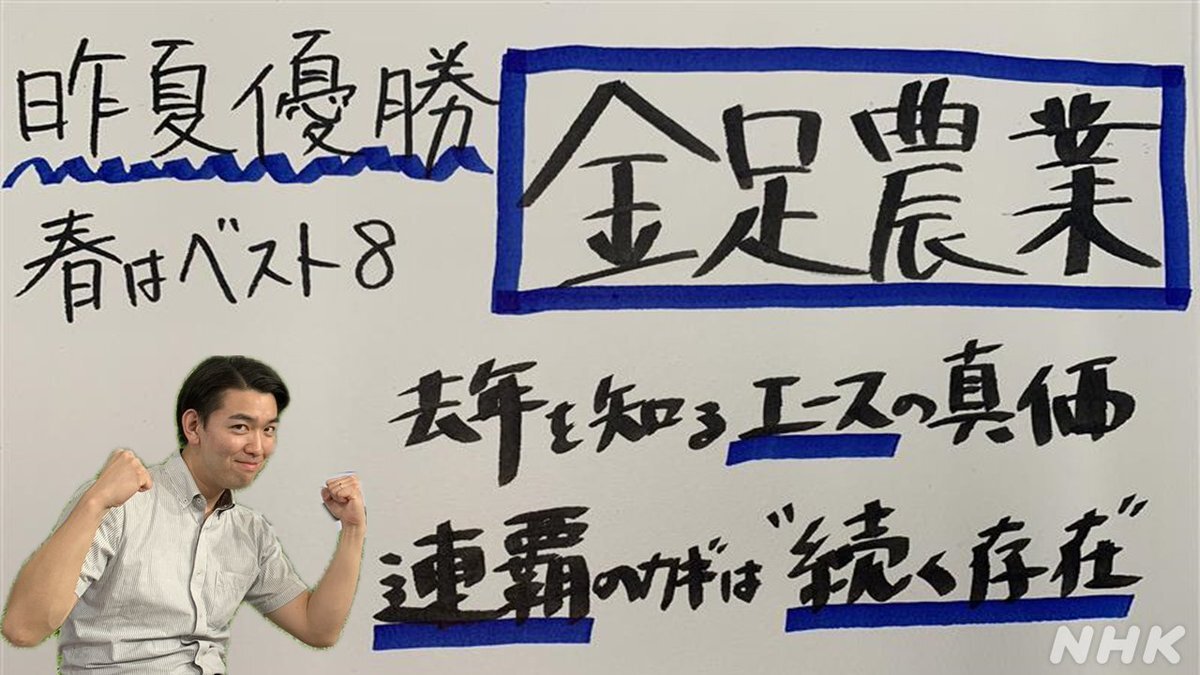 昨夏優勝
春はベスト8
金足農業
去年を知るエースの真価
連覇のカギは“続く存在”
NHK